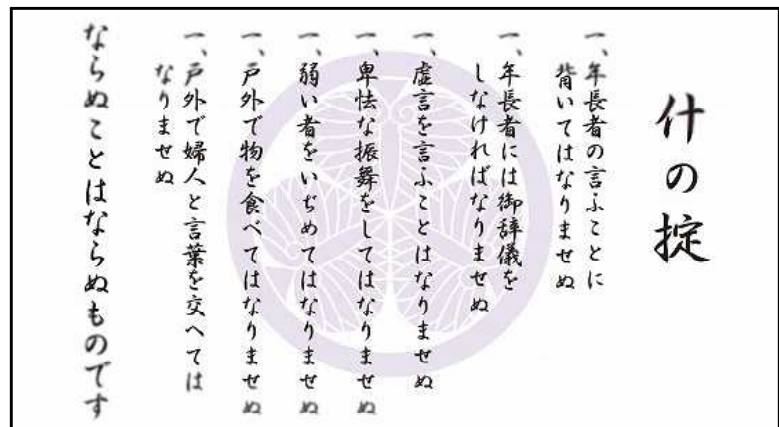 什の掟
一、年長者の言ふことに
背いてはなりませぬ
一、年長者には御辞儀を
しなければなりませぬ
一、虚言を言ふことはなりませぬ
一、卑怯な振舞をしてはなりませぬ
一、弱い者をいぢめてはなりませぬ
一、戸外で物を食べてはなりませぬ
一、戸外で婦人と言葉を交へては
なりませぬ
ならぬことはならぬものです